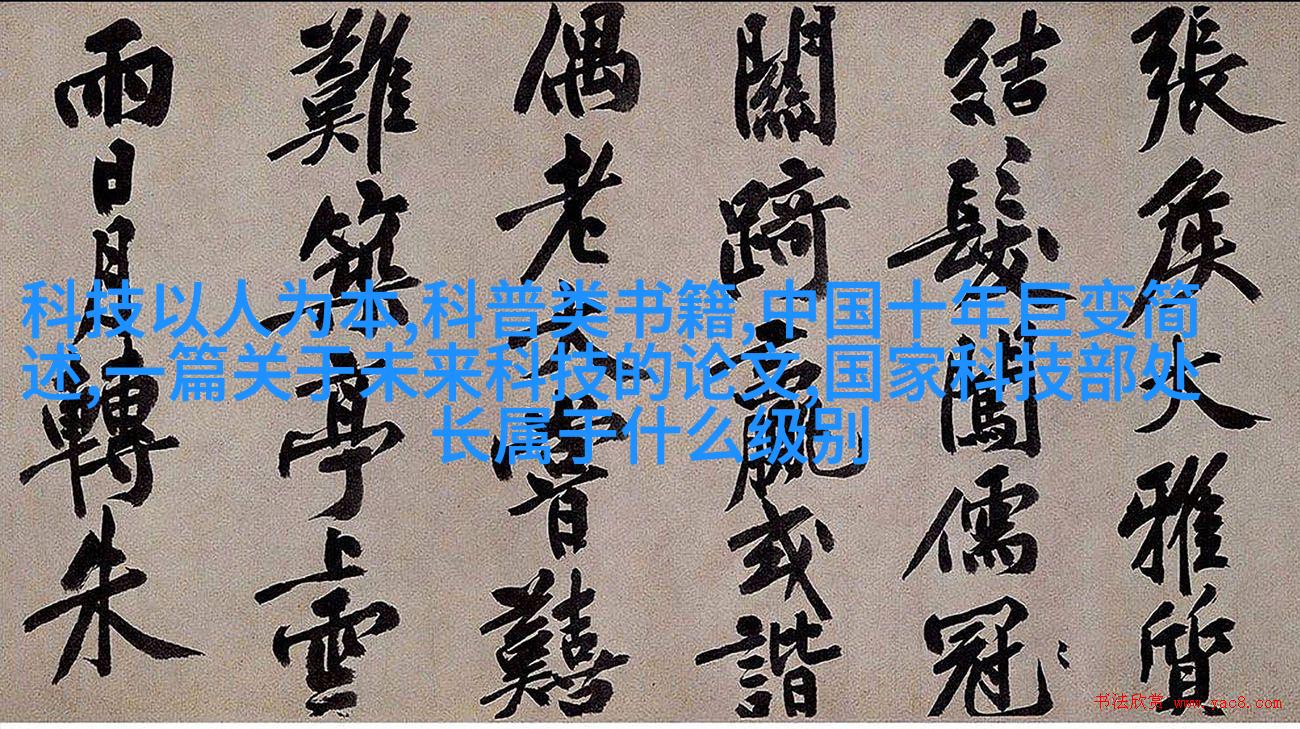 張矦大雅質
結髮闖儒冠
關踦或諧
偶老嘗囏
難築亭上雲
雨日月轉朱
科技以人为本,科普类书籍,中国十年巨变简
述,一篇关于未来科技的论文,国家科技部处
长属于什么级别
书法欣赏 www.yac8.com